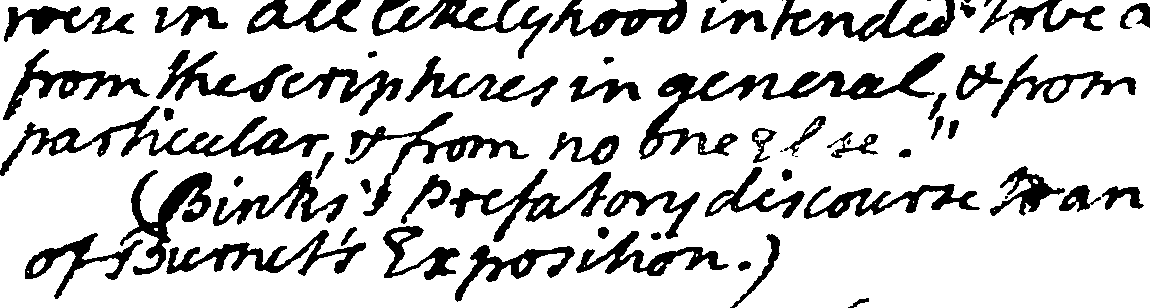 were in all likelyhood intended to be
from the scriptures in general, & from
particular, & from no one else."
(Binks's Prefatory discourse to an
of Burnet's Exposition.)